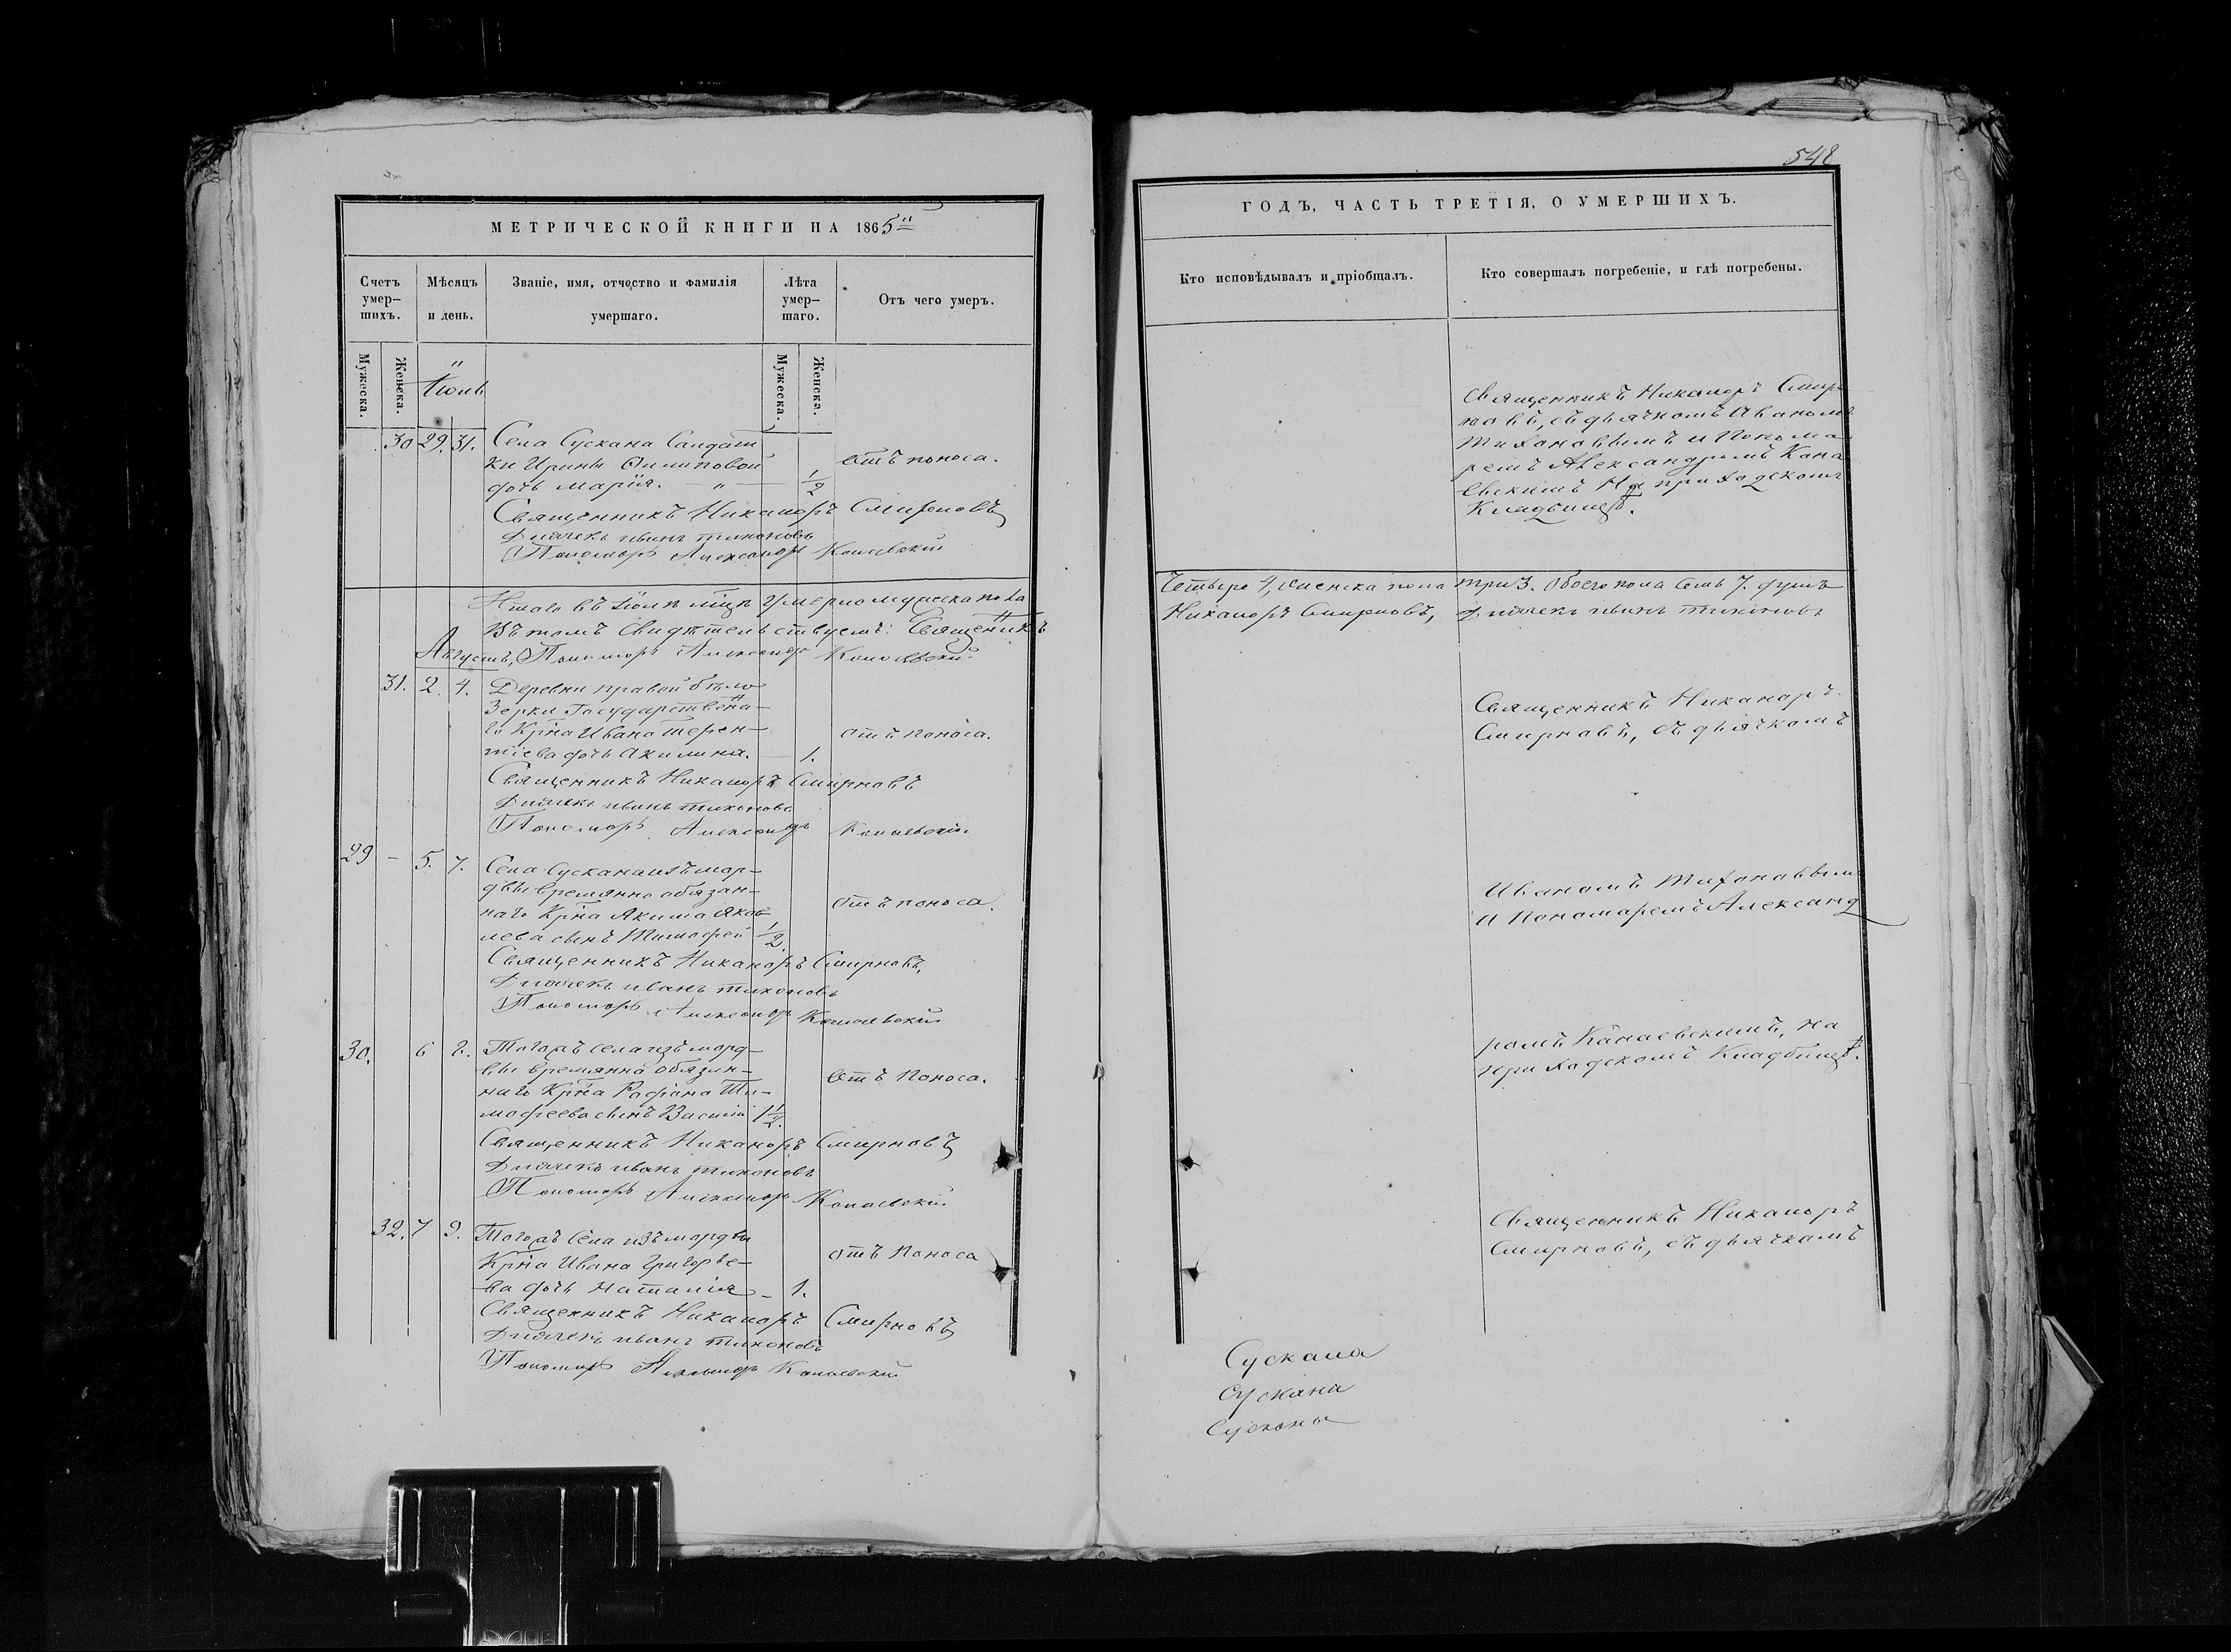 548
МЕТРИЧЕСКОЙ КНИГИ НА 1865й
Счетъ умер-шихъ.
Мѣсяцъ и день.
Званіе, имя, отчество и фамилія умершаго.
Лѣта умер-шаго.
Отъ чего умеръ.
Мужеска.
Женска.
Мужеска.
Женска.
Іюль
30 29. 31. Села Сускана Салдат
ки Ирины Филиповой
дочь Марія. — " — 1/2
Отъ поноса.
Священникъ Никаноръ Смирновъ
Дьячекъ Иванъ Тихоновъ
Пономарь Александръ Канаевскій
Итого въ Іюлѣ мцѣ умерло мужеска пола
Въ томъ свидѣтельствуемъ: Священникъ
Августъ, Пономарь Александръ Канаевскій
31. 2. 4. Деревни правой бѣло
зерки Государственна-
го Крна Ивана Терен-
тіева дочь Акилина. — 1.
отъ поноса.
Священникъ Никаноръ Смирновъ
Дьячекъ Иванъ Тихоновъ
Пономарь Александръ Канаевскій
29 — 5. 7. Села Сускана изъ мор-
двы временно обязан-
наго Крна Якима Яков
лева сынъ Тимофей 1/2.
отъ поноса.
Священникъ Никаноръ Смирновъ,
Дьячекъ Иванъ Тихоновъ
Пономарь Александръ Канаевскій
30. 6 8. Тогожъ села изъ морд-
вы временно обязан-
наго Крна Родіона Ти-
мофеева сынъ Василій 1 1/2.
Отъ Поноса.
Священникъ Никаноръ Смирновъ
Дьячекъ Иванъ Тихоновъ
Пономарь Александръ Канаевскій
32. 7 9. Тогожъ Села изъ мордвы
Крна Ивана Григорье-
ва дочь Наталія — 1.
отъ Поноса
Священникъ Никаноръ Смирновъ
Дьячекъ Иванъ Тихоновъ
Пономарь Александръ Канаевскій
ГОДЪ, ЧАСТЬ ТРЕТІЯ, О УМЕРШИХЪ.
Кто исповѣдывалъ и пріобщалъ.
Кто совершалъ погребеніе, и гдѣ погребены.
Священникъ Никаноръ Смир
новъ, съ дьячкомъ Иваномъ
Тихоновымъ и Понома
ремъ Александромъ Кана
евскимъ На приходскомъ
Кладбищѣ.
Четыре 4, женска пола три 3. обоего пола семь 7. душъ
Никаноръ Смирновъ, Дьячекъ Иванъ Тихоновъ
Священникъ Никаноръ
Смирновъ, съ дьячкомъ
Иваномъ Тихоновым
и Пономаремъ Александ
ромъ Канаевскимъ, на
приходскомъ Кладбищѣ.
Священникъ Никаноръ
Смирновъ, съ дьячкомъ
Сускана
Сускана
Сускана